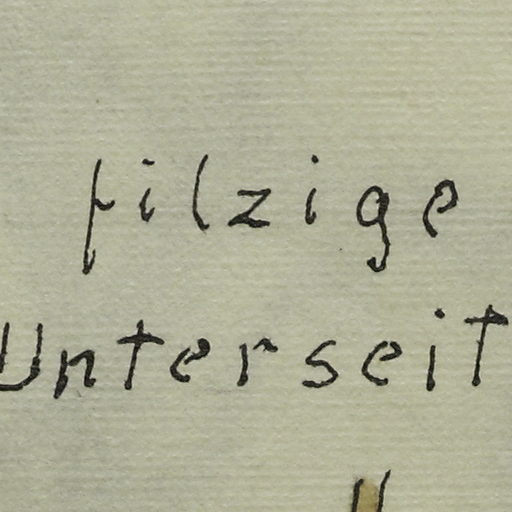 filzige
Unterseit